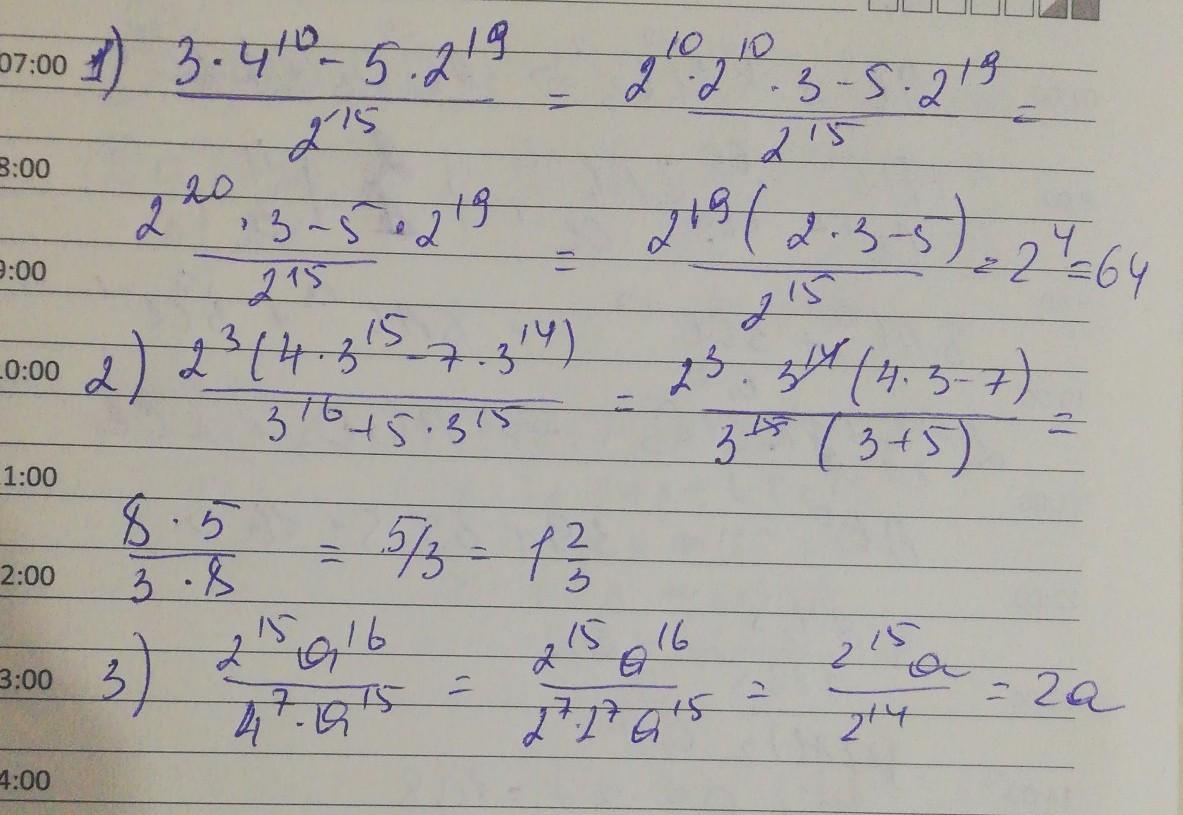 07:00 1) (3·4^10 - 5·2^19)/2^15 = (2^10·2^10·3-5·2^19)/2^15 =
8:00
9:00 (2^20·3-5·2^19)/2^15 = 2^19(2·3-5)/2^15 = 2^4=64
10:00 2) 2^3(4·3^15-7·3^14)/(3^16+5·3^15) = 2^3·3^14(4·3-7)/(3^15(3+5)) =
1:00
2:00 8·5/(3·8) = 5/3 = 1 2/3
3:00 3) 2^15 a^16/(4^7·a^15) = 2^15 a^16/(2^7·2^7 a^15) = 2^15 a/2^14 = 2a
4:00